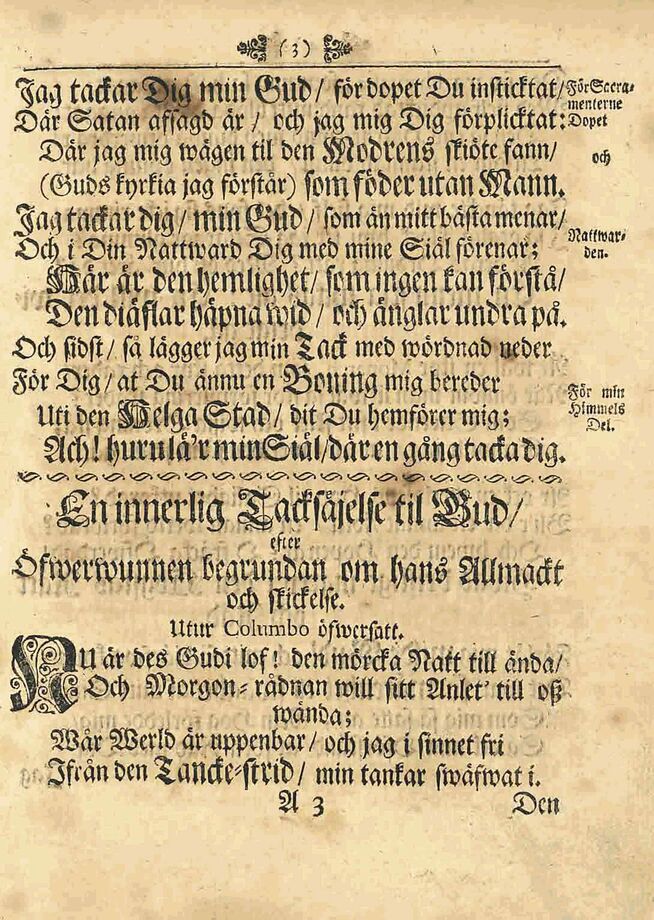 (3)
Jag tackar Dig min Gud / för dopet Du insticktat /
För Sacra-
menterne
Där Satan afsagd är / och jag mig Dig förplicktat:
Dopet
Där jag mig wägen til den Modrens skiöte fann /
och
(Guds kyrkia jag förstår) som föder utan Mann.
Jag tackar dig / min Gud / som än mitt bästa menar /
Nattwar-
den.
Och i Din Nattward Dig med mine Siäl förenar;
Här är den hemlighet / som ingen kan förstå /
Den diäflar häpna wid / och änglar undra på.
Och sidst / så lägger jag min Tack med wördnad neder
För Dig / at Du ännu en Boning mig bereder
För min
Himmels
Del.
Uti den Helga Stad / dit Du hemförer mig;
Ach! huru lä'r min Siäl / där en gång tacka dig.
En innerlig Tacksäjelse til Gud /
efter
Öfwerwunnen begrundan om hans Allmackt
och skickelse.
Utur Columbo öfwersatt.
NU är des Gudi lof! den mörcka Natt till ända /
Och Morgon-rådnan will sitt Anlet' till oß
wända;
Wår Werld är uppenbar / och jag i sinnet fri
Ifrån den Tancke-strid / min tankar swäfwat i.
A 3
Den